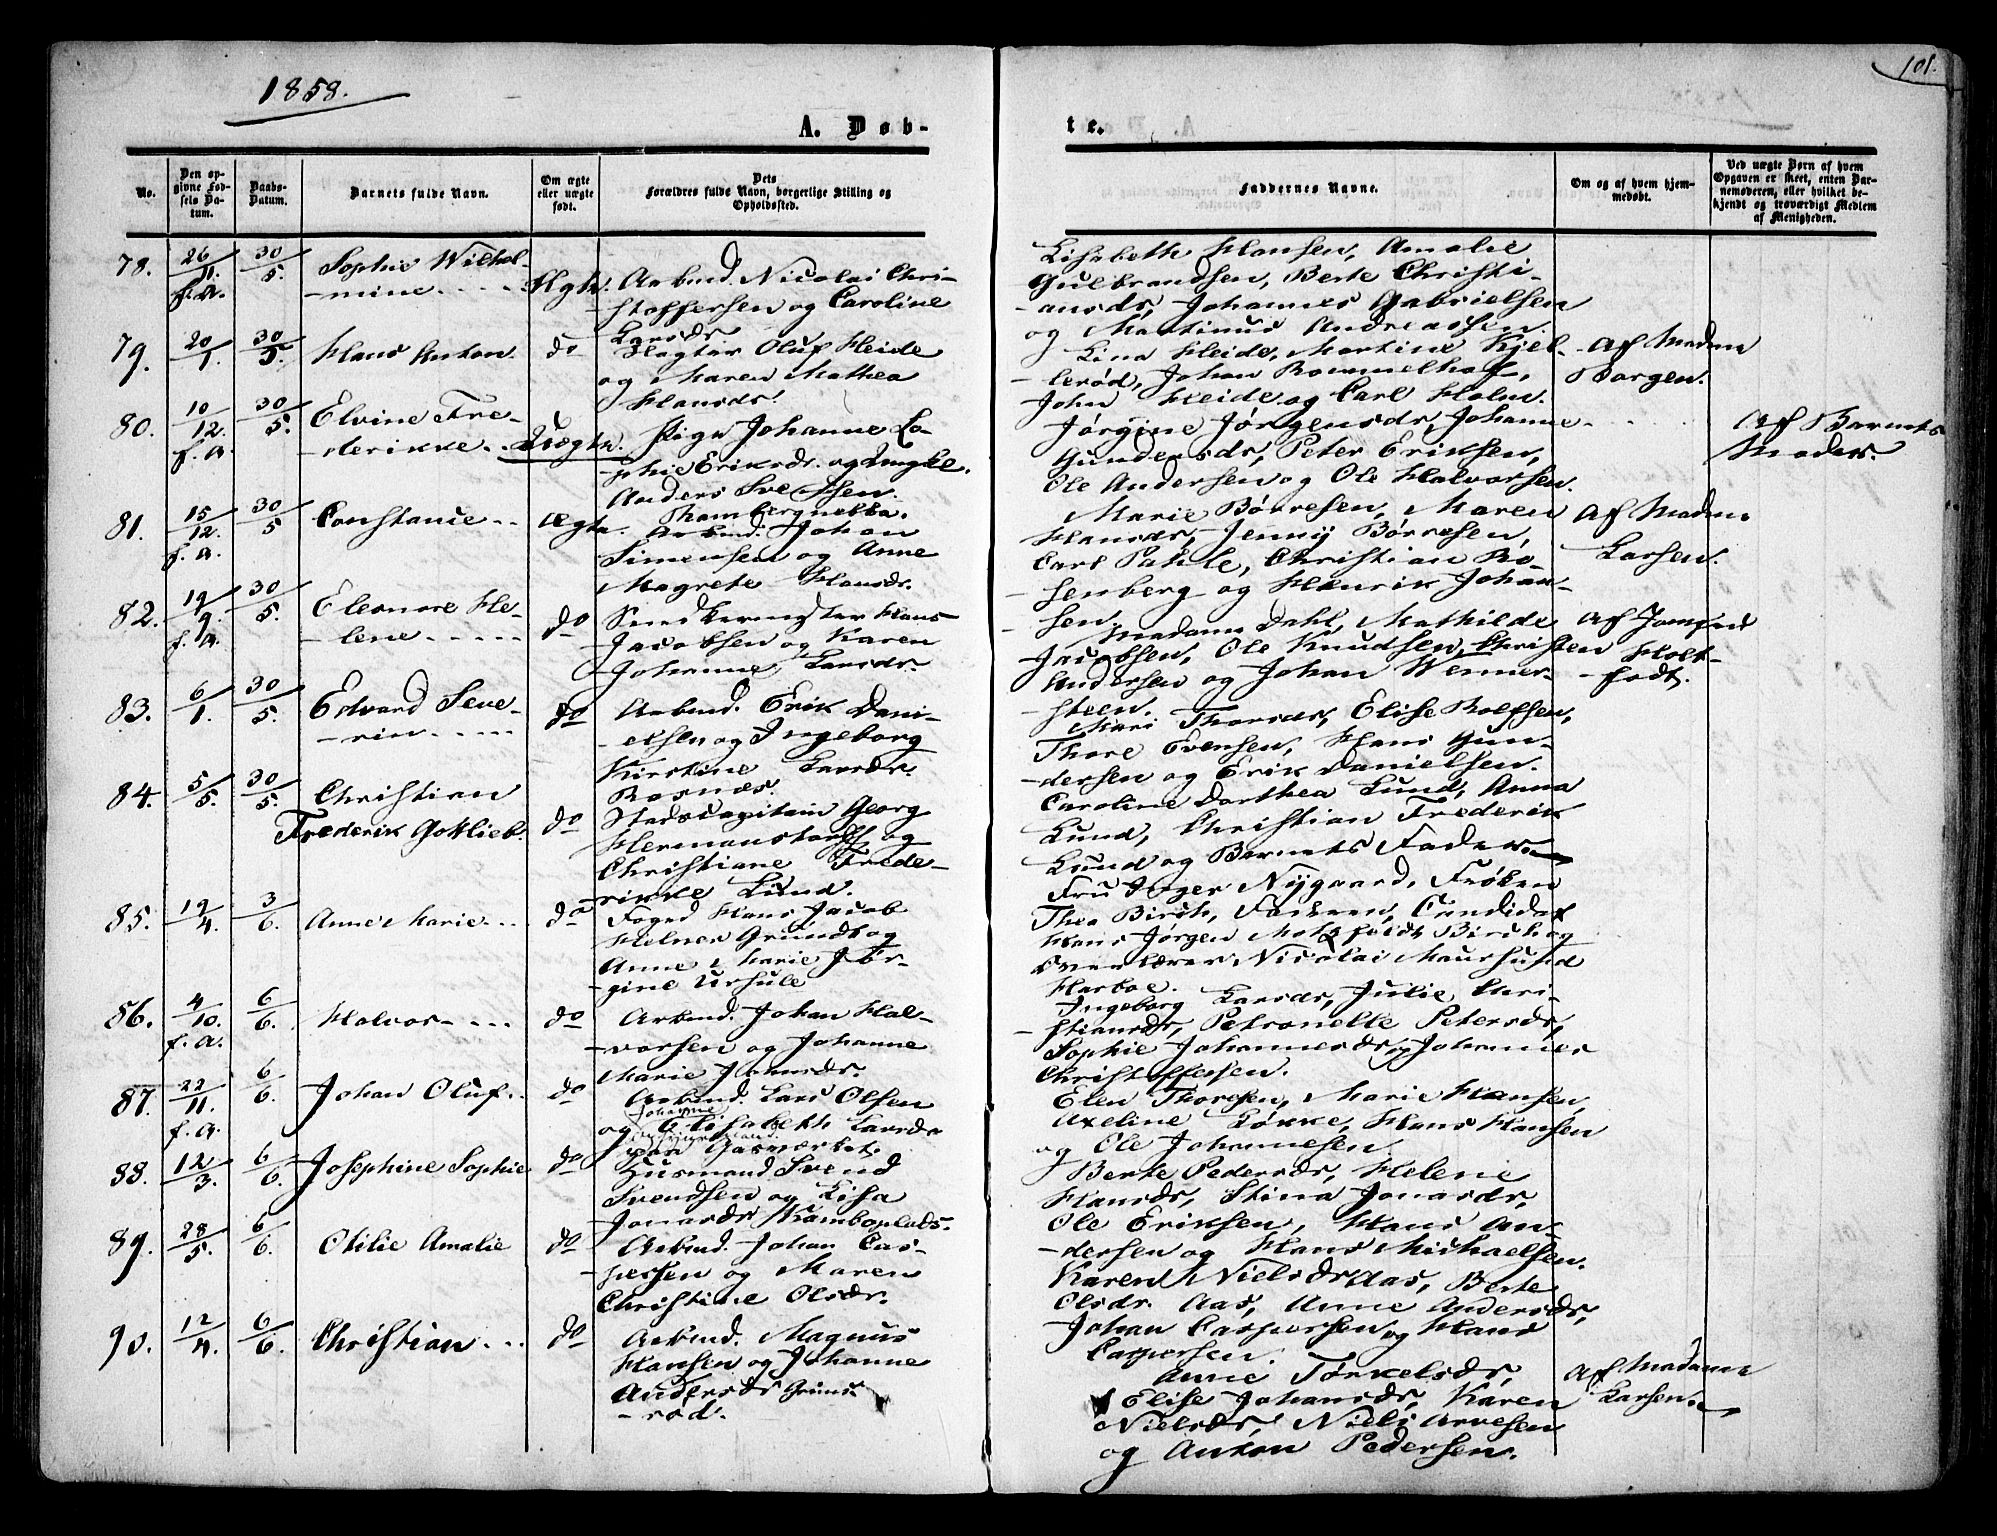 1858.
101.
A. Døb-
te.
No.
Den op-
givne Fød-
sels Da-
tum.
Daabs-
Datum.
Barnets fulde Navn.
Om ægte
eller uægte
født.
Dets
Forældres fulde Navn, borgerlige Stilling og
Opholdssted.
Faddernes Navne.
Om og af hvem hjem-
medøbt.
Ved uægte Børn af hvem
Opgaven er skeet, enten Bar-
nemoderen, eller hvilket be-
kjendt og troværdigt Medlem
af Menigheden.
78. 26/11. f.a. 30/5. Sophie Wilhel-
-mine Ægte.
Arbmd. Nicolai Chri-
stoffersen og Caroline
Larsdr
Lisabeth Hansen, Amalie
Gulbrandsen, Berte Christi-
-ansdr, Johannes Gabrielsen
og Martinus Andreassen.
79. 20/1. 30/5. Hans Anton. do
Oluf Heide
og Maren Mathea
Hansdr.
Lina Heide, Martine Kjel-
-lerød, Johan Rommelhof,
John Heide og Carl Holm.
Af Madam
Borgen.
80. 10/12. f.a. 30/5. Elvine Fre-
-derikke. Uægte.
Pige Johanne So-
phie Eriksdr. og Ungkl.
Anders Svendsen.
Jørgine Jørgensdr, Johanne
Gundersdr, Peter Eriksen,
Ole Andersen og Ole Halvorsen.
Af Barnets
Moder.
81. 15/12. f.a. 30/5 Constance Ægte.
Arbmd. Johan
Simensen og Anne
Magrete Hansdr.
Marie Børresen, Maren
Hansdr, Jenny Børresen,
Carl Pahle, Christian Ro-
senberg og Henrik Johan-
-sen.
Af Madam
Larsen.
82. 19/9. f.a. 30/5. Eleonore He-
-lene do
Hans
Jacobsen og Karen
Johanne Larsdr.
Madam Dahl, Mathilde
Jacobsen, Ole Knudsen, Christen
Andersen og Johan Wenner-
-steen.
Af Jomfru
Holt-
-fodt.
83. 6/1. 30/5. Edvard Seve-
-rin do
Arbmd. Erik Dani-
-elsen og Ingeborg
Kirstine Larsdr.
Rosnæs.
Mari Thorsdr, Elise Rolfsen,
Thore Evensen, Hans Gun-
-dersen og Erik Danielsen.
84. 5/5. 30/5. Christian
Frederik Gotlieb. do
Stadscapitain Georg
Herman og
Christiane Frede-
-rikke Lund.
Caroline Dorthea Lund, Anna
Lund, Christian Frederik
Lund og Barnets Fader.
85. 19/4. 3/6. Anne Marie do
Foged Hans Jacob
Grundt og
Anne Marie Jør-
-gine Ursule
Fru Inger Nygaard, Frøken
Thea Birch, Candidat
Hans Jørgen Birch og
Overlærer Nicolai Maursund
Harboe.
86. 4/10. f.a. 6/6. Halvor do
Arbmd. Johan Hal-
-vorsen og Johanne
Marie
Ingeborg Larsdr, Julie Chri-
-stiansdr, Petronelle Petersdr,
Sophie Johannesdr og Johannes
Christoffersen.
87. 22/11. f.a. 6/6. Johan Oluf do
Arbmd. Lars Olsen
Johanne
og Elisabeth Larsdr
Elen Thoresen, Marie Hansen,
Axeline Løkke, Hans Hansen
og Ole Johannesen.
88. 12/3. 6/6. Josephine Sophie do
Husmand Svend
Svendsen og Lisa
Jonasdr
Berte Pedersdr, Helene
Hansdr, Stina Jonasdr,
Ole Eriksen, Hans An-
-dersen og Hans Michaelsen.
89. 28/5. 6/6. Otilie Amalie do
Arbmd. Johan Cas-
-persen og Maren
Christine Olsdr.
Karen Nielsdr Aas, Berte
Olsdr. Aas, Anne Andersdr,
Johan Caspersen og Hans
Caspersen.
90. 12/4. 6/6. Christian do
Arbmd. Magnus
Hansen og Johanne
Andersdr Grims-
-rød.
Anne Tørkelsdr,
Elise Johansdr, Karen
Nielsdr, Niels Arvesen
og Anton Pedersen.
Af Madam
Larsen.